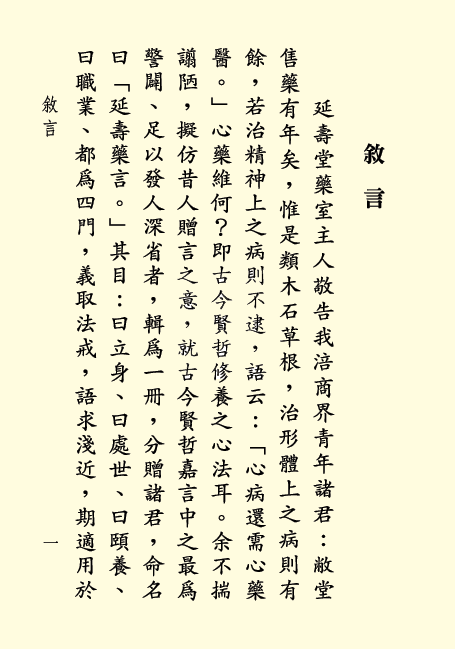 敘言
延壽堂藥室主人敬告我涪商界青年諸君：敝堂
售藥有年矣，惟是類木石草根，治形體上之病則有
餘，若治精神上之病則不逮，語云：「心病還需心藥
醫。」心藥維何？即古今賢哲修養之心法耳。余不揣
譾陋，擬仿昔人贈言之意，就古今賢哲嘉言中之最為
警闢、足以發人深省者，輯為一冊，分贈諸君，命名
曰「延壽藥言。」其目：曰立身、曰處世、曰頤養、
曰職業、都為四門，義取法戒，語求淺近，期適用於
敘言
一